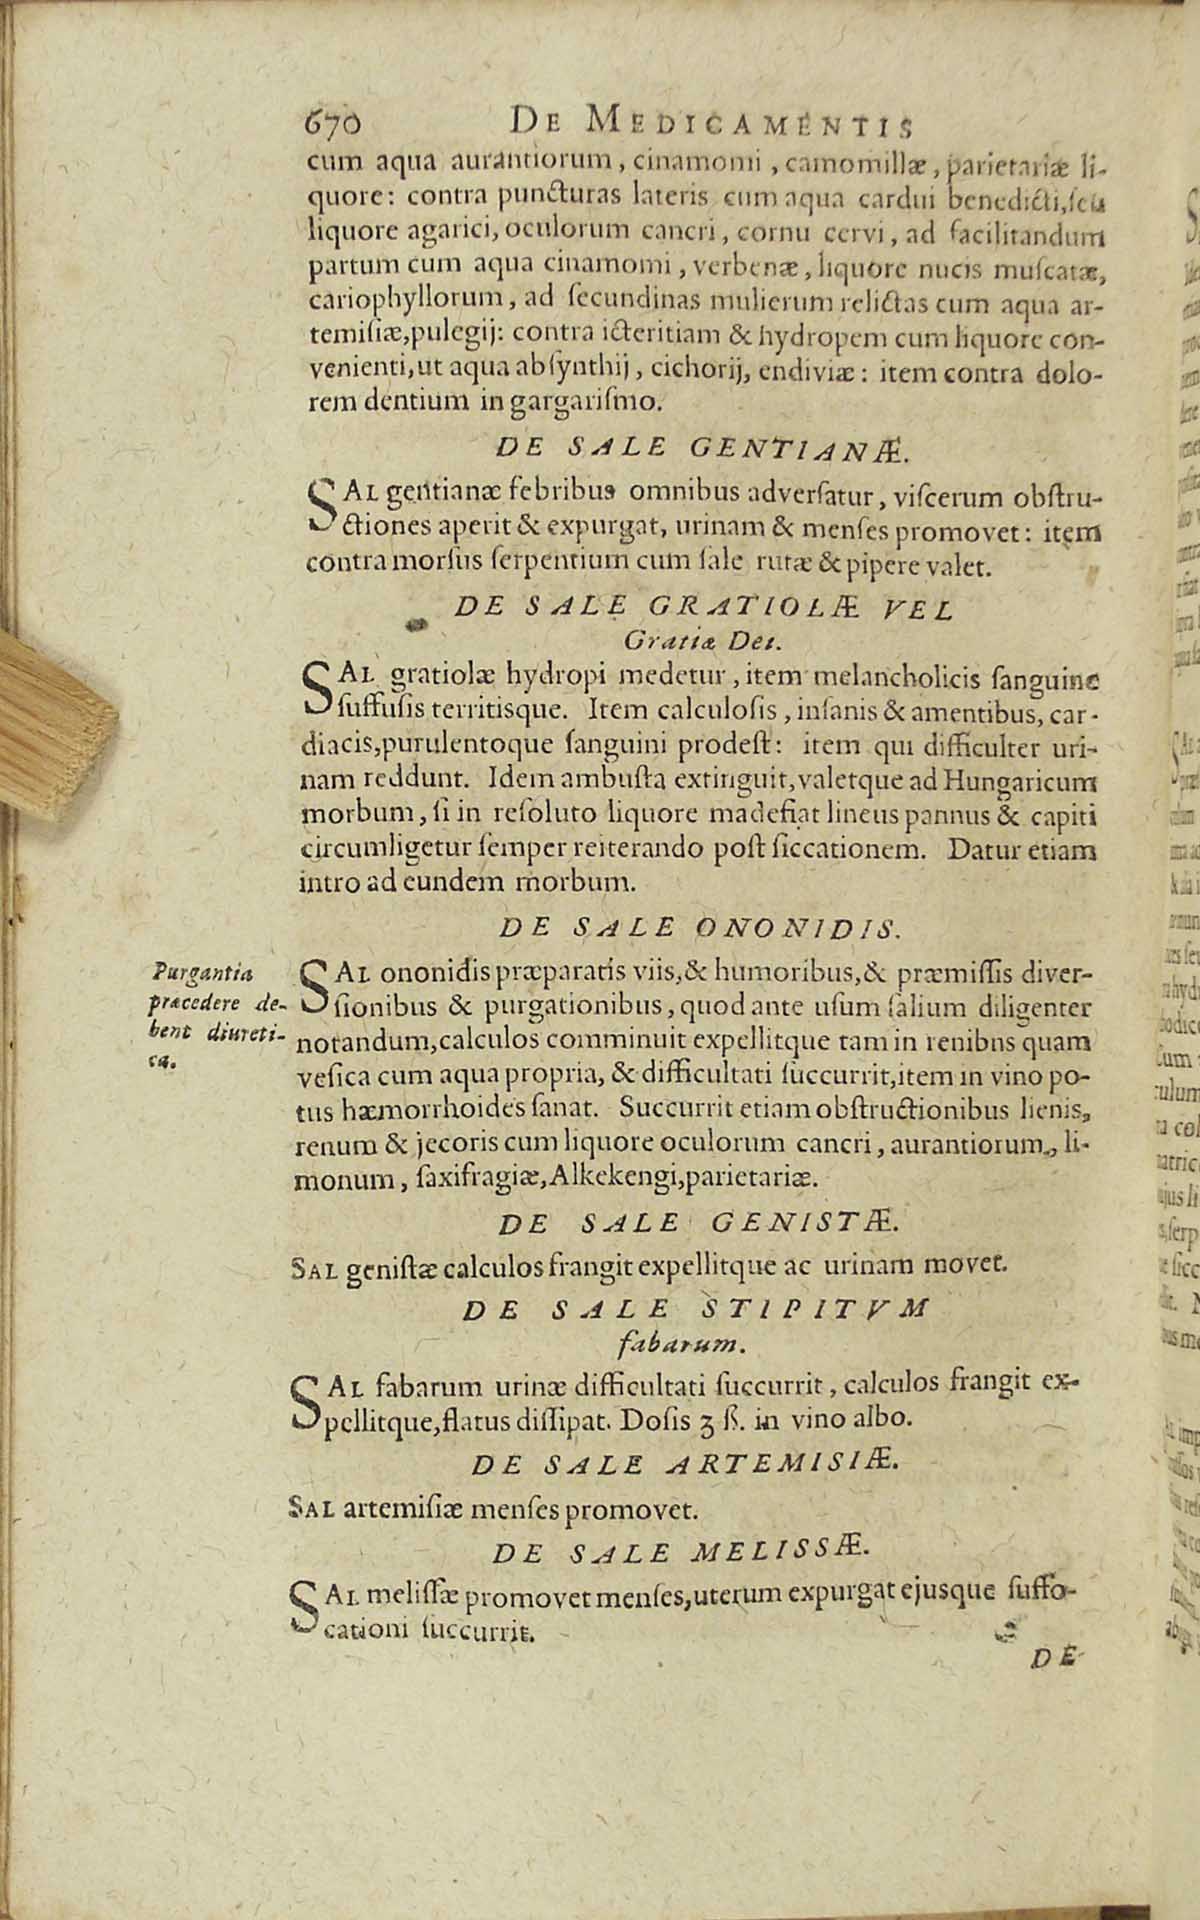 670 DE MEDICAMENTIS
cum aqua aurantiorum, cinamomi, camomillæ, parietariæ li-
quore: contra puncturas lateris cum aqua cardui benedicti, ſeu
liquore agarici, oculorum cancri, cornu cervi, ad facilitandum
partum cum aqua cinamomi, verbenæ, liquore nucis muſcatæ,
cariophyllorum, ad ſecundinas mulierum relictas cum aqua ar-
temiſiæ, pulegij: contra icteritiam & hydropem cum liquore con-
venienti, ut aqua abſynthij, cichorij, endiviæ: item contra dolo-
rem dentium in gargariſmo.
DE SALE GENTIANÆ.
SAL gentianæ febribus omnibus adverſatur, viſcerum obſtru-
ctiones aperit & expurgat, urinam & menſes promovet: item
contra morſus ſerpentium cum ſale rutæ & pipere valet.
DE SALE GRATIOLÆ VEL
Gratiæ Dei.
SAL gratiolæ hydropi medetur, item melancholicis ſanguine
ſuffuſis territisque. Item calculoſis, inſanis & amentibus, car-
diacis, purulentoque ſanguini prodeſt: item qui difficulter uri-
nam reddunt. Idem ambuſta extinguit, valetque ad Hungaricum
morbum, ſi in reſoluto liquore madefiat lineus pannus & capiti
circumligetur ſemper reiterando poſt ſiccationem. Datur etiam
intro ad eundem morbum.
DE SALE ONONIDIS.
Purgantia
præcedere de-
bent diureti-
ca.
SAL ononidis præparatis viis, & humoribus, & præmiſſis diver-
ſionibus & purgationibus, quod ante uſum ſalium diligenter
notandum, calculos comminuit expellitque tam in renibus quam
veſica cum aqua propria, & difficultati ſuccurrit, item in vino po-
tus hæmorrhoides ſanat. Succurrit etiam obſtructionibus lienis,
renum & jecoris cum liquore oculorum cancri, aurantiorum, li-
monum, ſaxifragiæ, Alkekengi, parietariæ.
DE SALE GENISTÆ.
SAL geniſtæ calculos frangit expellitque ac urinam movet.
DE SALE STIPITVM
fabarum.
SAL fabarum urinæ difficultati ſuccurrit, calculos frangit ex-
pellitque, flatus diſſipat. Doſis ʒ ß. in vino albo.
DE SALE ARTEMISIÆ.
SAL artemiſiæ menſes promovet.
DE SALE MELISSÆ.
SAL meliſſæ promovet menſes, uterum expurgat ejusque ſuffo-
cationi ſuccurrit.
DE